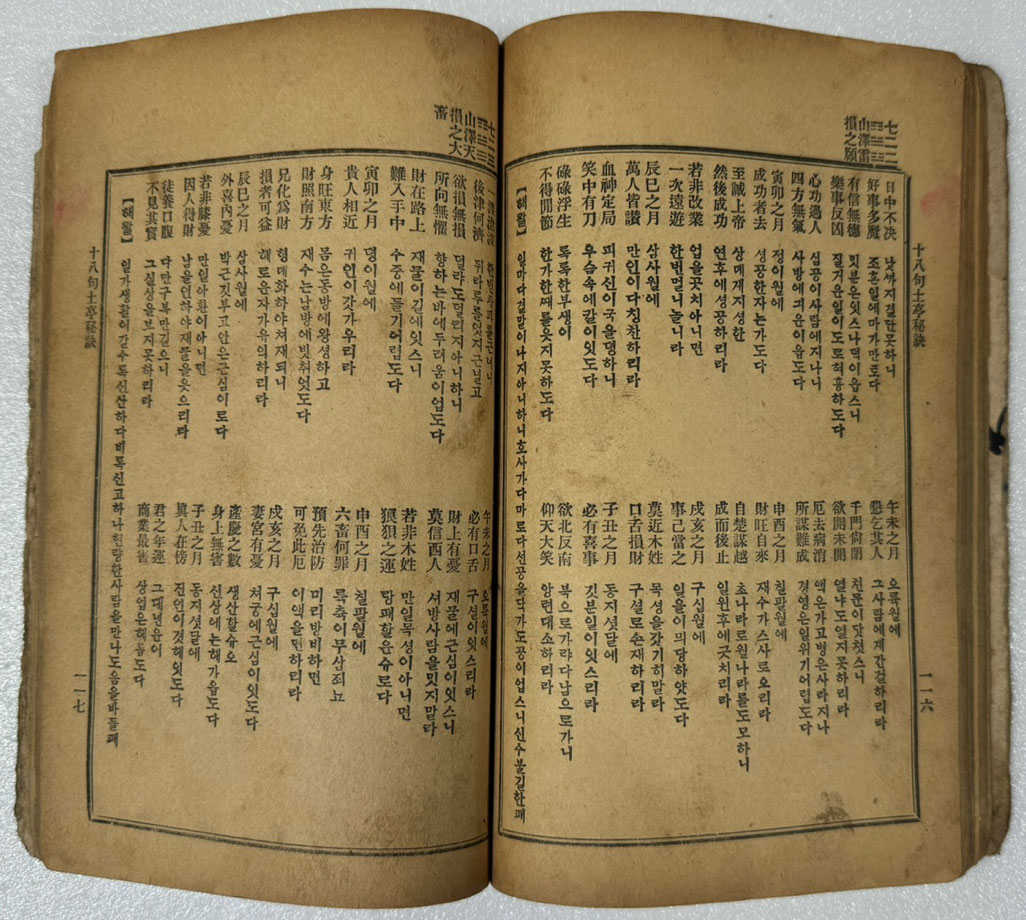 七二二
山澤雷
損之頤
十八句土亭秘訣
一一六
日中不决 낫까지결단못하니
好事多魔 조흔일에마가만토다
有信無德 밋븐은잇스나덕이읍스니
樂事反凶 질거운일이도로혀흉하도다
心功過人 심공이사람에지나니
四方無氣 사방에긔운이읍도다
寅卯之月 정이월에
成功者去 성공한자는가도다
至誠上帝 상뎨게지성한
然後成功 연후에성공하리라
若非改業 업을곳치아니면
一次遠遊 한번멀니놀니라
辰巳之月 삼사월에
萬人皆讃 만인이다칭찬하리라
血神定局 피귀신이국을뎡하니
笑中有刀 우슴속에칼이잇도다
碌碌浮生 록록한부생이
不得閒節 한가한때를웃지못하도다
午未之月 오륙월에
懇乞其人 그사람에게간걸하리라
千門尙閉 천문이닷첫스니
欲開未開 열냐도열지못하리라
厄去病消 액은가고병은사라지나
所謀難成 경영은일위기어렵도다
申酉之月 칠팔월에
財旺自來 재수가스사로오리라
自楚謀越 초나라로월나라를도모하니
成而後止 일윈후에긋치리라
戌亥之月 구십월에
事己當之 일을이믜당하얏도다
莫近木姓 목성을갓기히말라
口舌損財 구셜로손재하리라
子丑之月 동지섯달에
必有喜事 깃븐일이잇스리라
欲北反南 북으로가랴다남으로가니
仰天大笑 앙련대소하리라
【해왈】 일마다결말이나지아니하니호사가다마로다선공을닥가도공이업스니신수불길한패
七二三
山澤天
損之大
畜
十八句土亭秘訣
一一七
後津何濟 뒤라루를엇지근널고
欲損無損 덜랴도덜리지아니하니
所向無懼 향하는바에두려움이업도다
財在路上 재물이길에잇스니
難入手中 수중에들기어렵도다
寅卯之月 뎡이월에
貴人相近 귀인이갓가우리라
身旺東方 몸은동방에왕성하고
財照南方 재수는남방에빗취엇도다
兄化爲財 형뎨화하야재되니
損者可益 해로운자가유의하리라
辰巳之月 삼사월에
外喜內憂 밧근깃부고안은근심이로다
若非膝憂 만일아환이아니면
因人得財 남을인하야재물을웃으리라
徒養口腹 다만구복만길으니
不見其實 그실상을보지못하리라
午未之月 오륙월에
必有口舌 구셜이잇스리라
財上有憂 재물에근심이잇스니
莫信西人 셔방사람을밋지말라
若非木姓 만일목셩이아니면
狼狽之運 랑패할운수로다
申酉之月 칠팔월에
六畜何罪 륙축이무삼죄뇨
預先治防 미리방비하면
可免此厄 이액을면하리라
戌亥之月 구십월에
妻宮有憂 처궁에근심이잇도다
產慶之數 생산할슈오
身上無害 신상에는해가읍도다
子丑之月 동지셧달에
眞人在傍 진인이겻해잇도다
君之年運 그대년운이
商業最害 상업은해롭도다
【해왈】 일가생활이갈수록신산하다비록신고하나현량한사람을만나도음을바들패